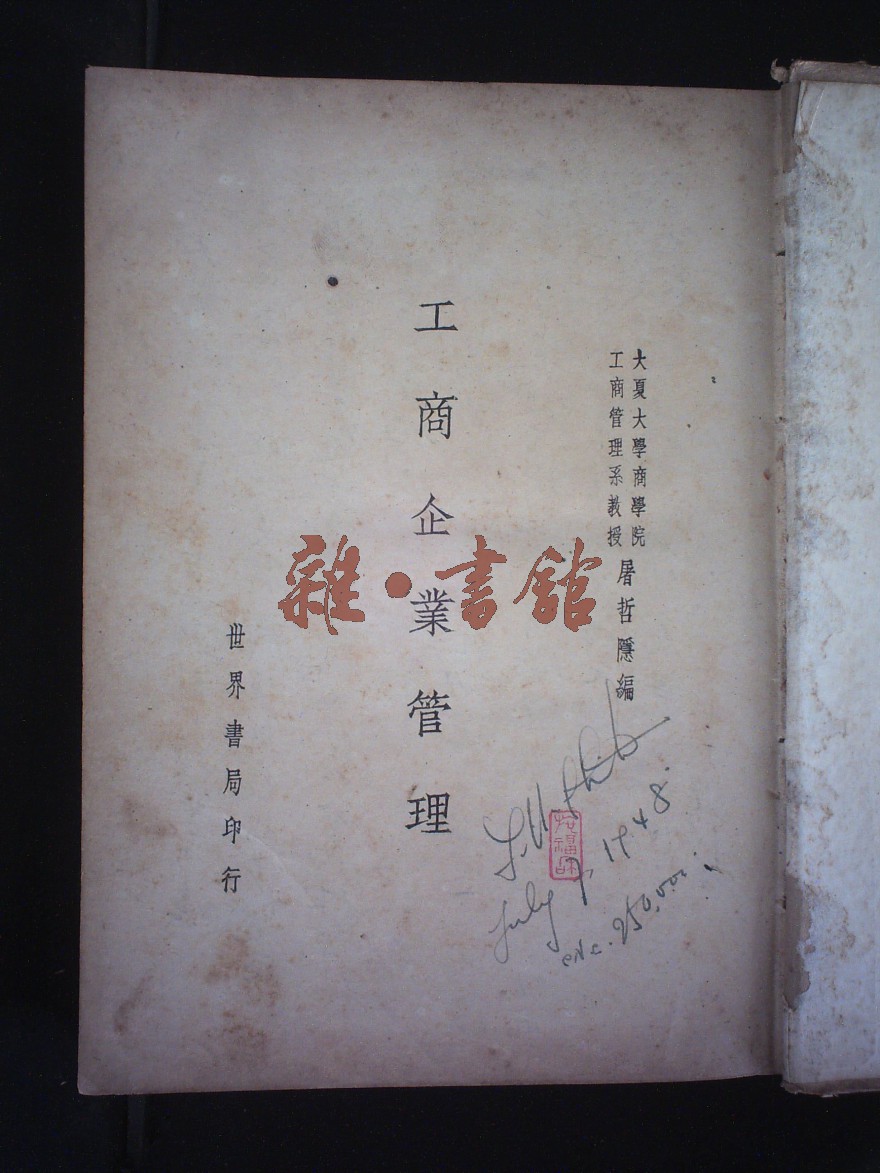 大夏大學商學院
工商管理系教授
屠哲隱編
工商企業管理
世界書局印行
雜·書館
July 7, 1948.
250,000.